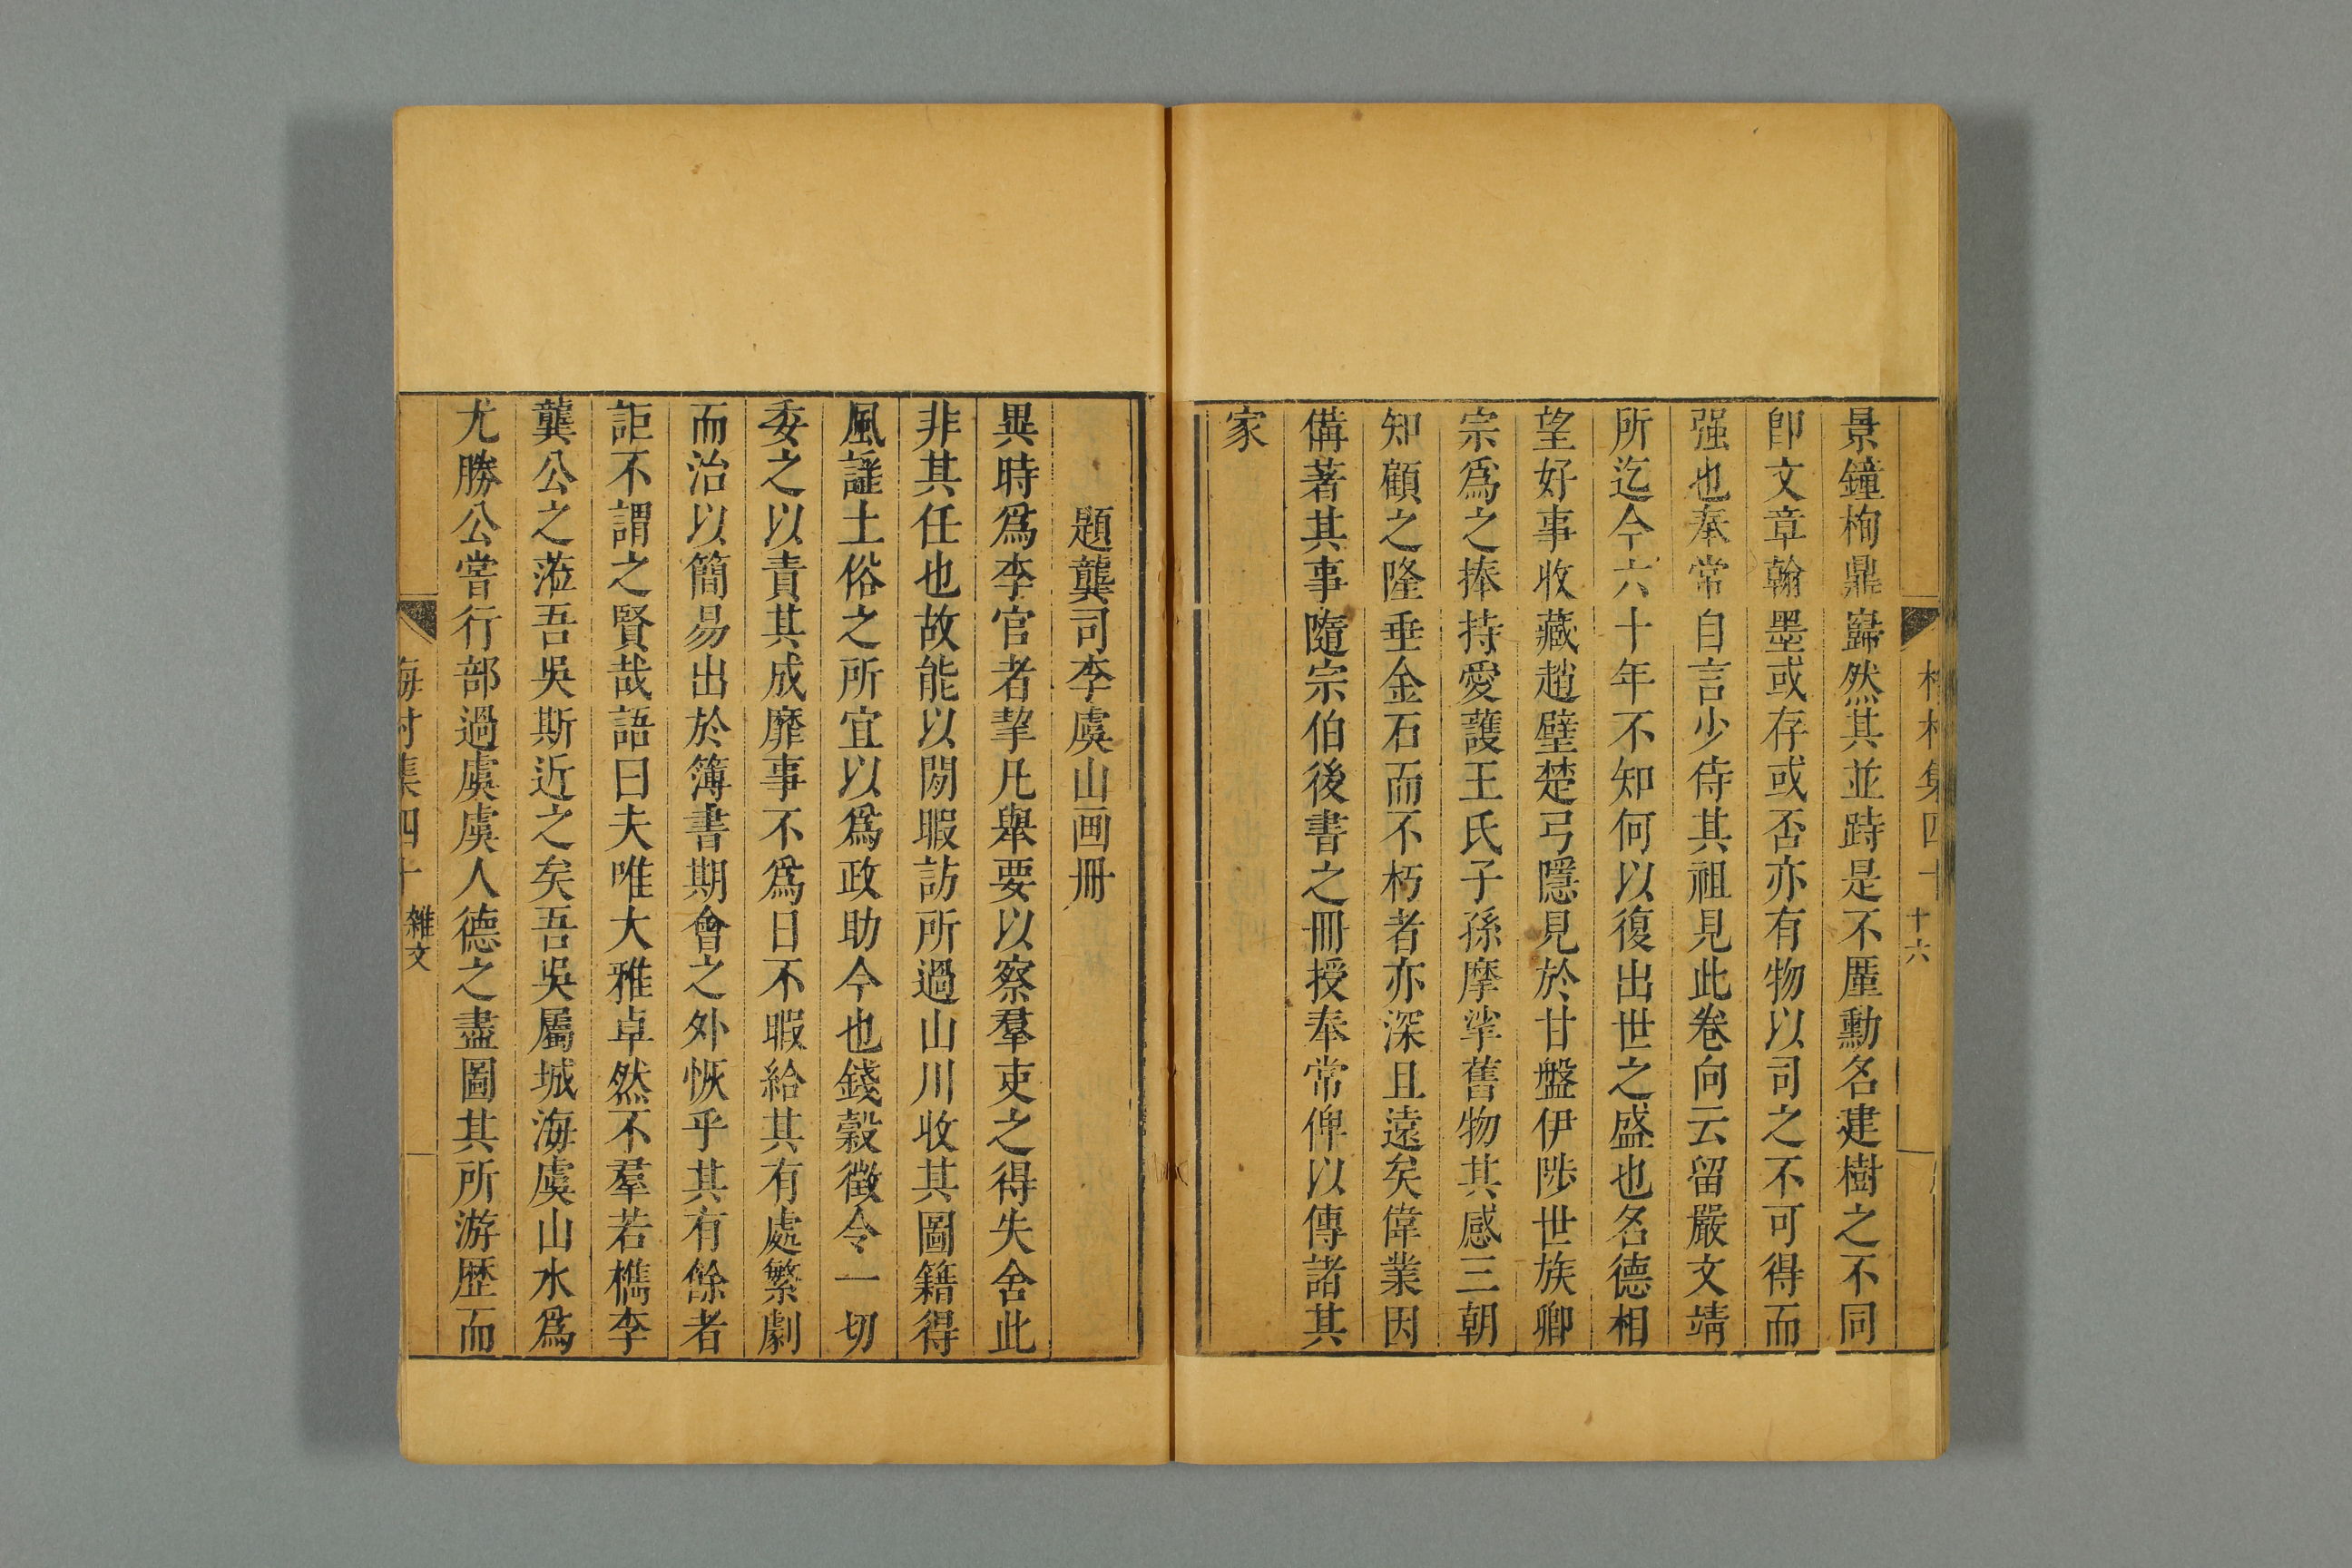 梅村集四十
十六
景鐘栒鼎巋然其並跱是不厪勳名建樹之不同
卽文章翰墨或存或否亦有物以司之不可得而
强也奉常自言少侍其祖見此卷向云留嚴文靖
所迄今六十年不知何以復出世之盛也名德相
望好事收藏趙璧楚弓隱見於甘盤伊陟世族卿
宗爲之捧持愛護王氏子孫摩挲舊物其感三朝
知顧之隆垂金石而不朽者亦深且遠矣偉業因
備著其事隨宗伯後書之冊授奉常俾以傳諸其
家
題龔司李虞山画冊
異時爲李官者挈凡舉要以察羣吏之得失舍此
非其任也故能以閒暇訪所過山川收其圖籍得
風謡土俗之所宜以爲政助今也錢穀徵令一切
委之以責其成靡事不爲日不暇給其有處繁劇
而治以簡易出於簿書期會之外恢乎其有餘者
詎不謂之賢哉語曰夫唯大雅卓然不羣若檇李
龔公之蒞吾吳斯近之矣吾吳屬城海虞山水爲
尤勝公嘗行部過虞虞人德之盡圖其所游歴而
梅村集四十
雜文